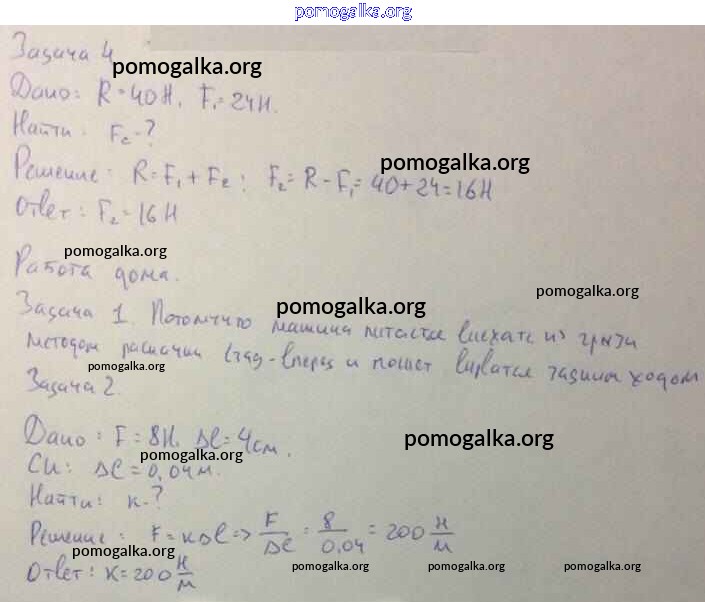 pomogalka.org
Задача 4
pomogalka.org
Дано: R = 40Н, F₁ = 24Н.
Найти: F₂ - ?
pomogalka.org
Решение: R = F₁ + F₂; F₂ = R - F₁ = 40 + 24 = 16Н
Ответ: F₂ = 16Н
pomogalka.org
Работа дома.
pomogalka.org
pomogalka.org
Задача 1. Потомучто машина питается виехать из грязи
методом раскачки взад-вперед и может вирватся задним ходом
pomogalka.org
Задача 2.
Дано: F = 8Н, Δl = 4см.
pomogalka.org
pomogalka.org
СИ: Δl = 0,04м.
Найти: к - ?
Решение: F = кΔl => F/Δl = 8/0,04 = 200 Н/м
pomogalka.org
Ответ: к = 200 Н/м
pomogalka.org pomogalka.org pomogalka.org